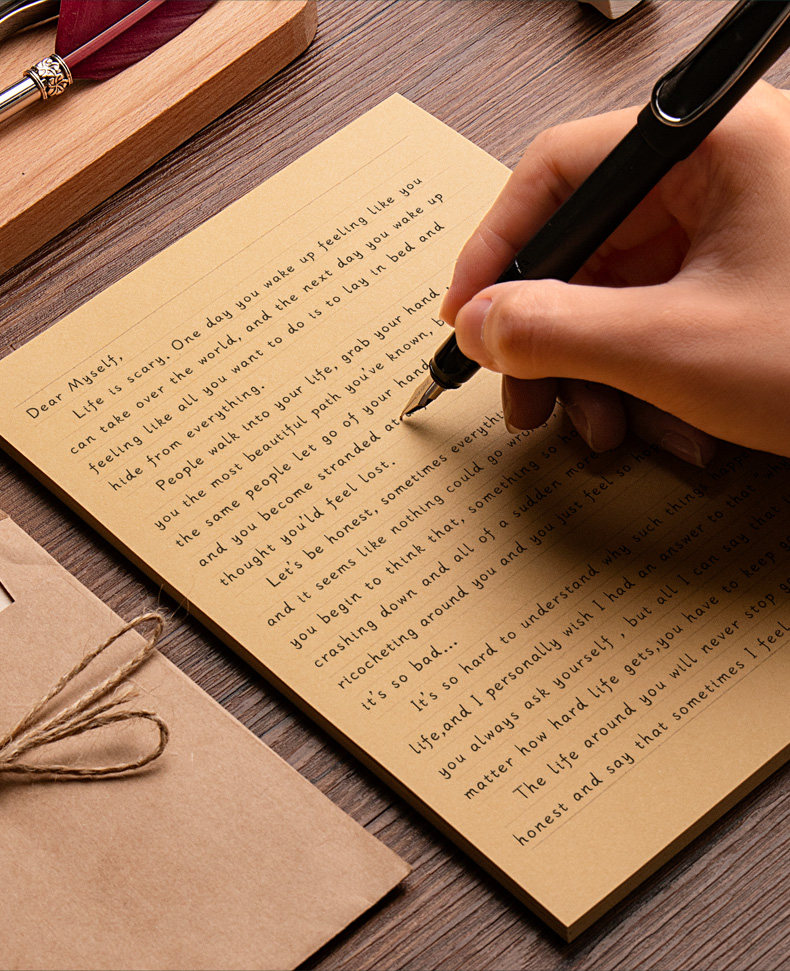 Dear Myself,
Life is scary. One day you wake up feeling like you
can take over the world, and the next day you wake up
feeling like all you want to do is to lay in bed and
hide from everything.
People walk into your life, grab your hand
you the most beautiful path you've known,
the same people let go of your hand
and you become stranded at
thought you'ld feel lost.
Let's be honest, sometimes
and it seems like nothing could go
you begin to think that, something so
crashing down and all of a sudden more
ricocheting around you and you just feel so
it's so bad...
It's so hard to understand why such thing
life,and I personally wish I had an answer to that
you always ask yourself , but all I can say that
matter how hard life gets,you have to keep
The life around you will never stop
honest and say that sometimes I feel